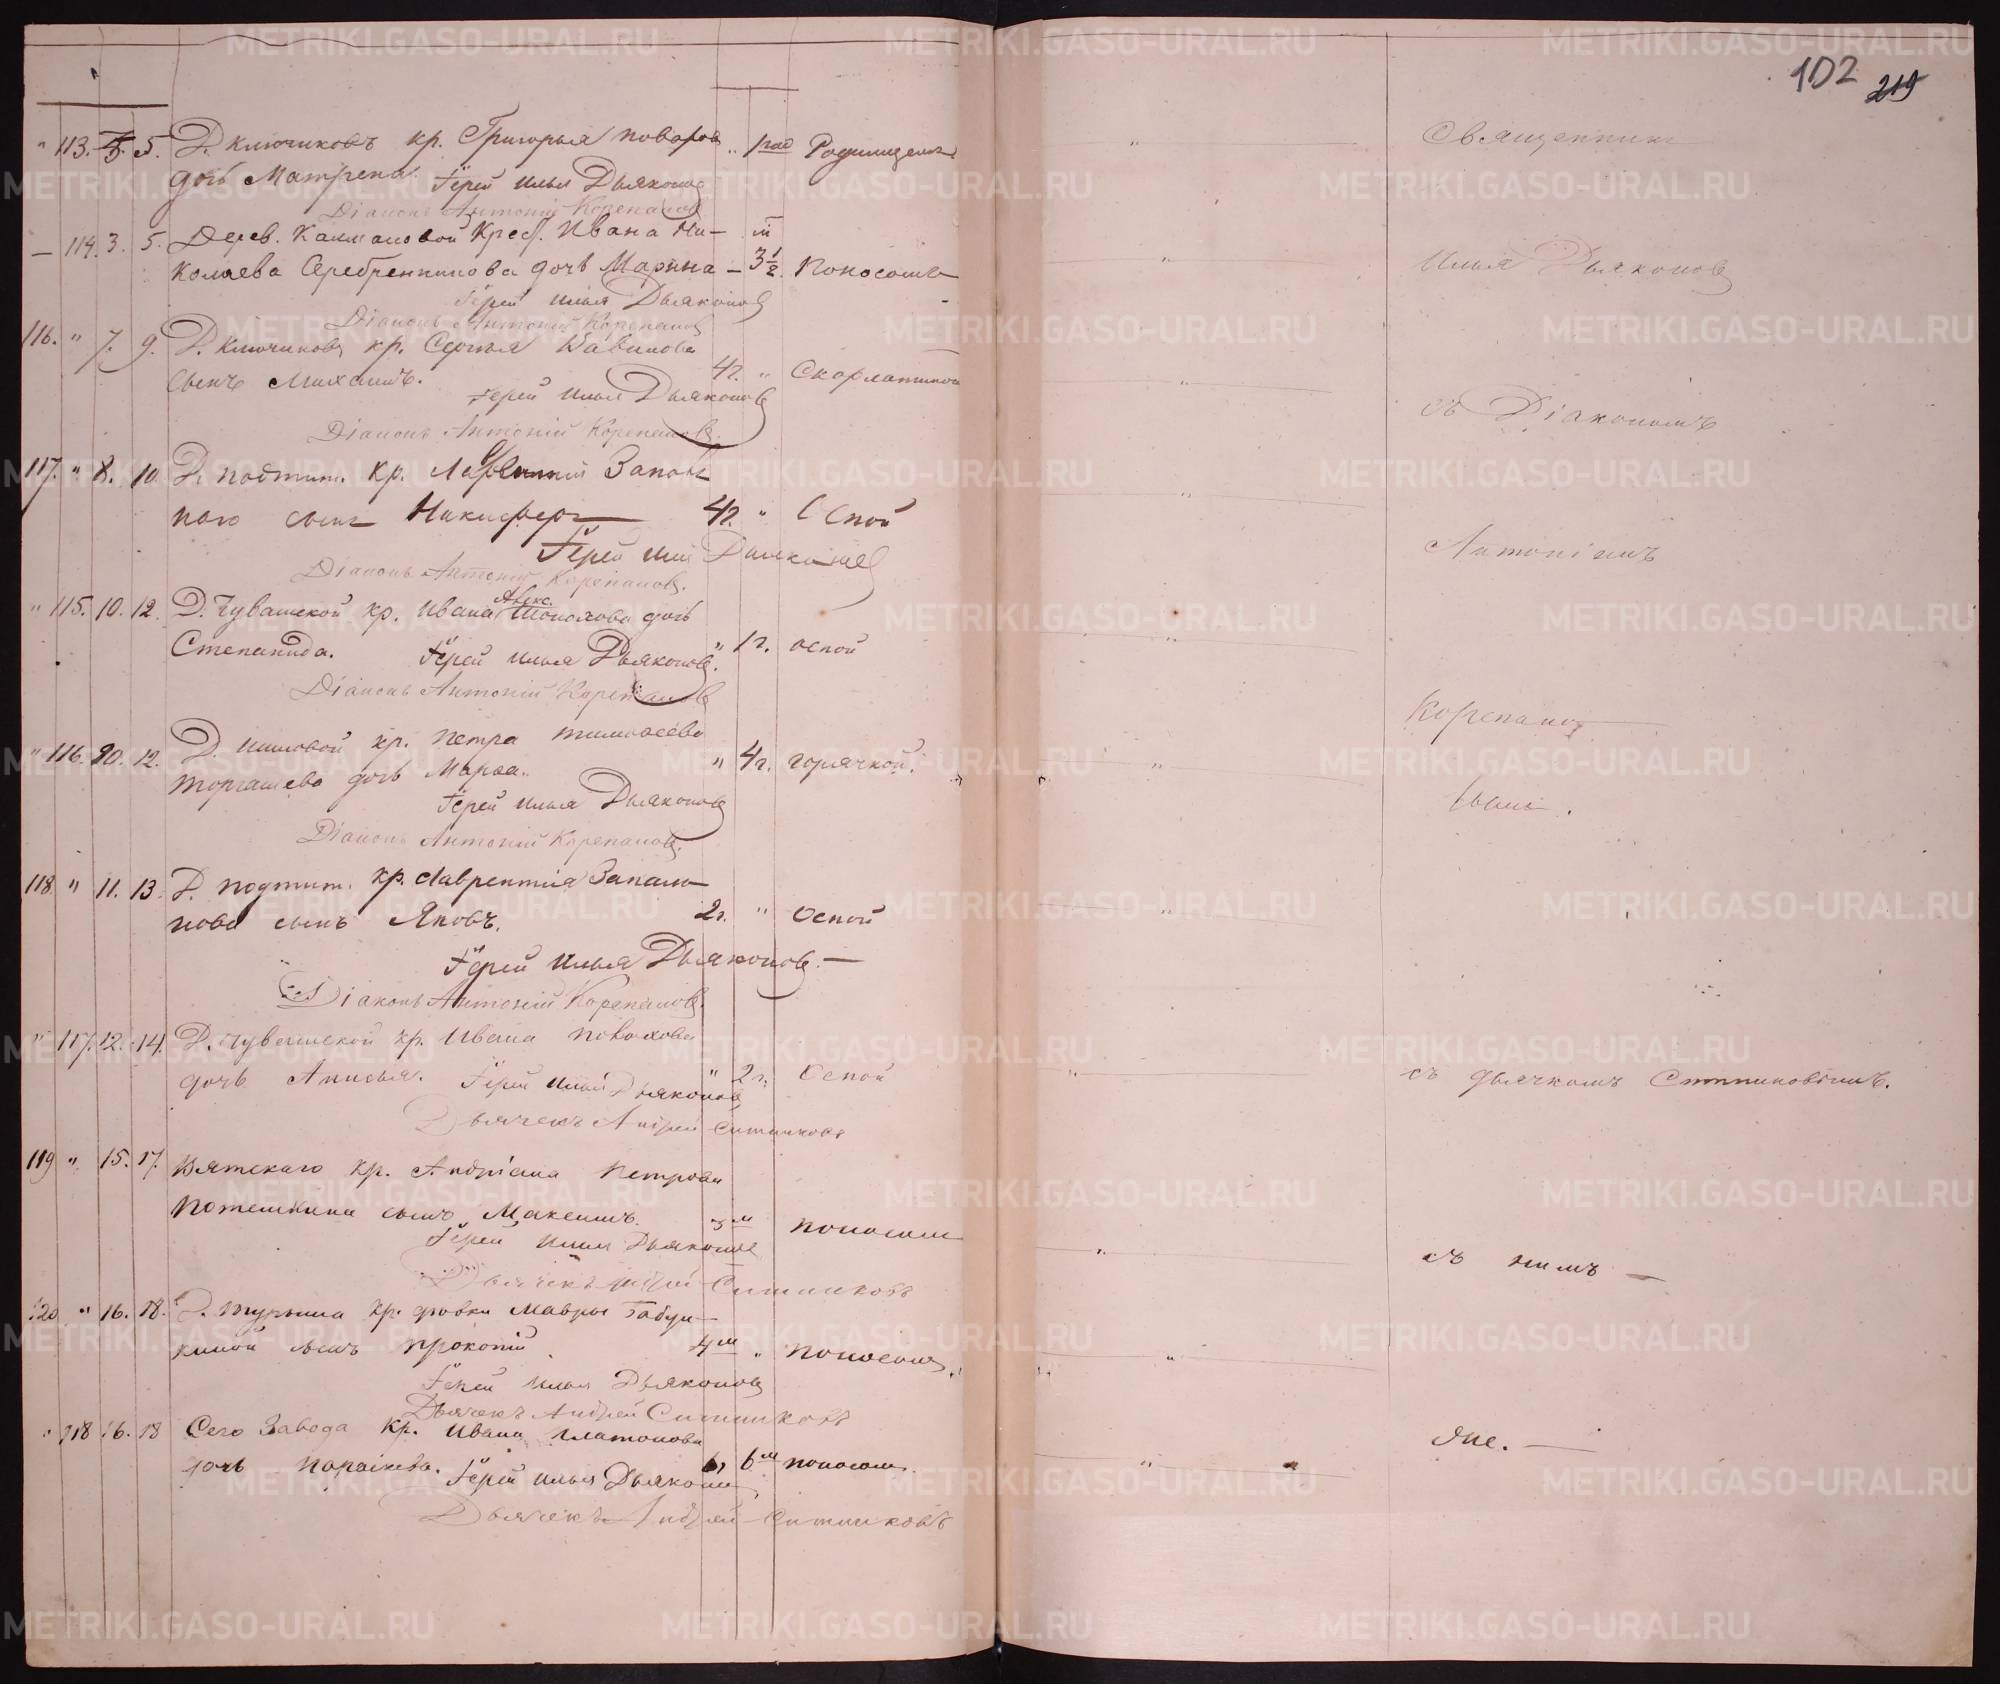 102 219
" 113. 3. 5. Д. Ключиковъ кр. Григорья Поваров " 1 год Родимицемъ
дочь Матрена. Іерей Илья Дьяконовъ
Діаконъ Антоній Корепановъ
— 114. 3. 5. Дерев. Калмаковой Крест. Ивана Ни- м
колаева Серебренникова дочь Марина — 3 1/2. Поносомъ
Іерей Илья Дьяконовъ
Діаконъ Антоній Корепановъ
116. " 7. 9. Д. Ключиковъ кр. Сергѣя Вавилова
сынъ Михаилъ. 4 г. " Скарлатиной
Іерей Илья Дьяконовъ
Діаконъ Антоній Корепановъ.
117. " 8. 10. Д. Подтит. кр.
сынъ Никифоръ 4 г. " Оспой
Іерей Илья Дьяконовъ
Діаконъ Антоній Корепановъ.
" 115. 10. 12. Д. Чувашской кр. Ивана Алекс. дочь
Степанида. " 1 г. оспой
Іерей Илья Дьяконовъ.
Діаконъ Антоній Корепановъ
" 116. 10. 12. Д. кр. Петра Тимоѳеева
Торгашева дочь Марѳа. " 4 г. горячкой.
Іерей Илья Дьяконовъ
Діаконъ Антоній Корепановъ.
118. " 11. 13. Д. Подтит. кр. Лаврентія Запаль-
нова сынъ Яковъ. 2 г. " Оспой
Іерей Илья Дьяконовъ. —
Діаконъ Антоній Корепановъ.
" 117. 12. 14. Д. Чувашской кр. Ивана
дочь Анисья. " 2 г. Оспой
Іерей Илья Дьяконовъ
Дьячекъ Андрей Ситниковъ
119 " 15. 17. Вятскаго кр. Андріана Петрова
Потешкина сынъ Максимъ. 3 м поносомъ
Іерей Илья Дьяконовъ
Дьячекъ Андрей Ситниковъ
120 " 16. 18. Д. Турыша кр. дѣвки Мавры Бабуш-
киной сынъ Прокопій 4 м " поносомъ
Іерей Илья Дьяконовъ
Дьячекъ Андрей Ситниковъ
" 118 16. 18 Сего Завода кр. Ивана Платонова
дочь Параскева. " 6 м поносом.
Іерей Илья Дьяконовъ
Дьячекъ Андрей Ситниковъ
Священникъ
Илья Дьяконовъ
съ Діакономъ
Антоніемъ
Корепано
вымъ.
съ дьячкомъ Ситниковымъ.
съ нимъ —
Онѣ. —
METRIKI.GASO-URAL.RU